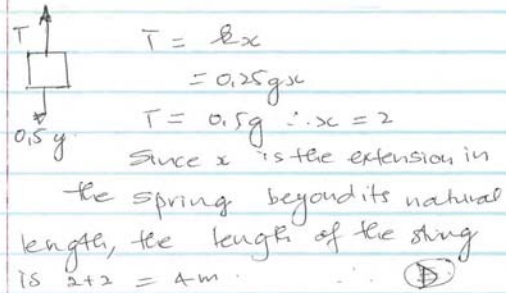 T
T = kx
= 0,25gx
0,5g
T = 0,5g ∴ x = 2
Since x is the extension in
the spring beyond its natural
length, the length of the string
is 2+2 = 4m. ∴ D